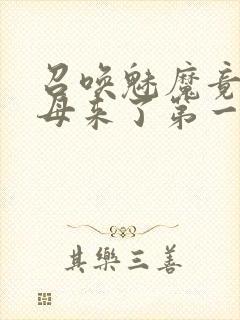 召唤魅魔竟
母来了第一
其樂三善